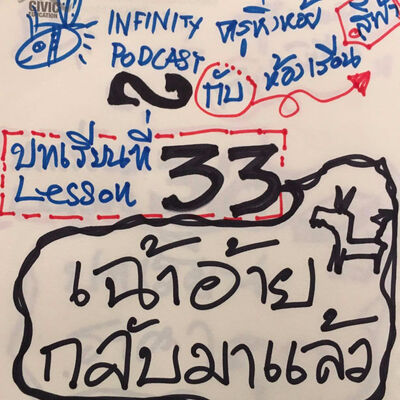 SIVIC
EDUCATION
INFINITY ครูหิ่งห้อย
PODCAST
2 กับ ห้องเรียน
บทเรียนที่ 33
Lesson
เฉ้าอ้าย
กลับมาแล้ว